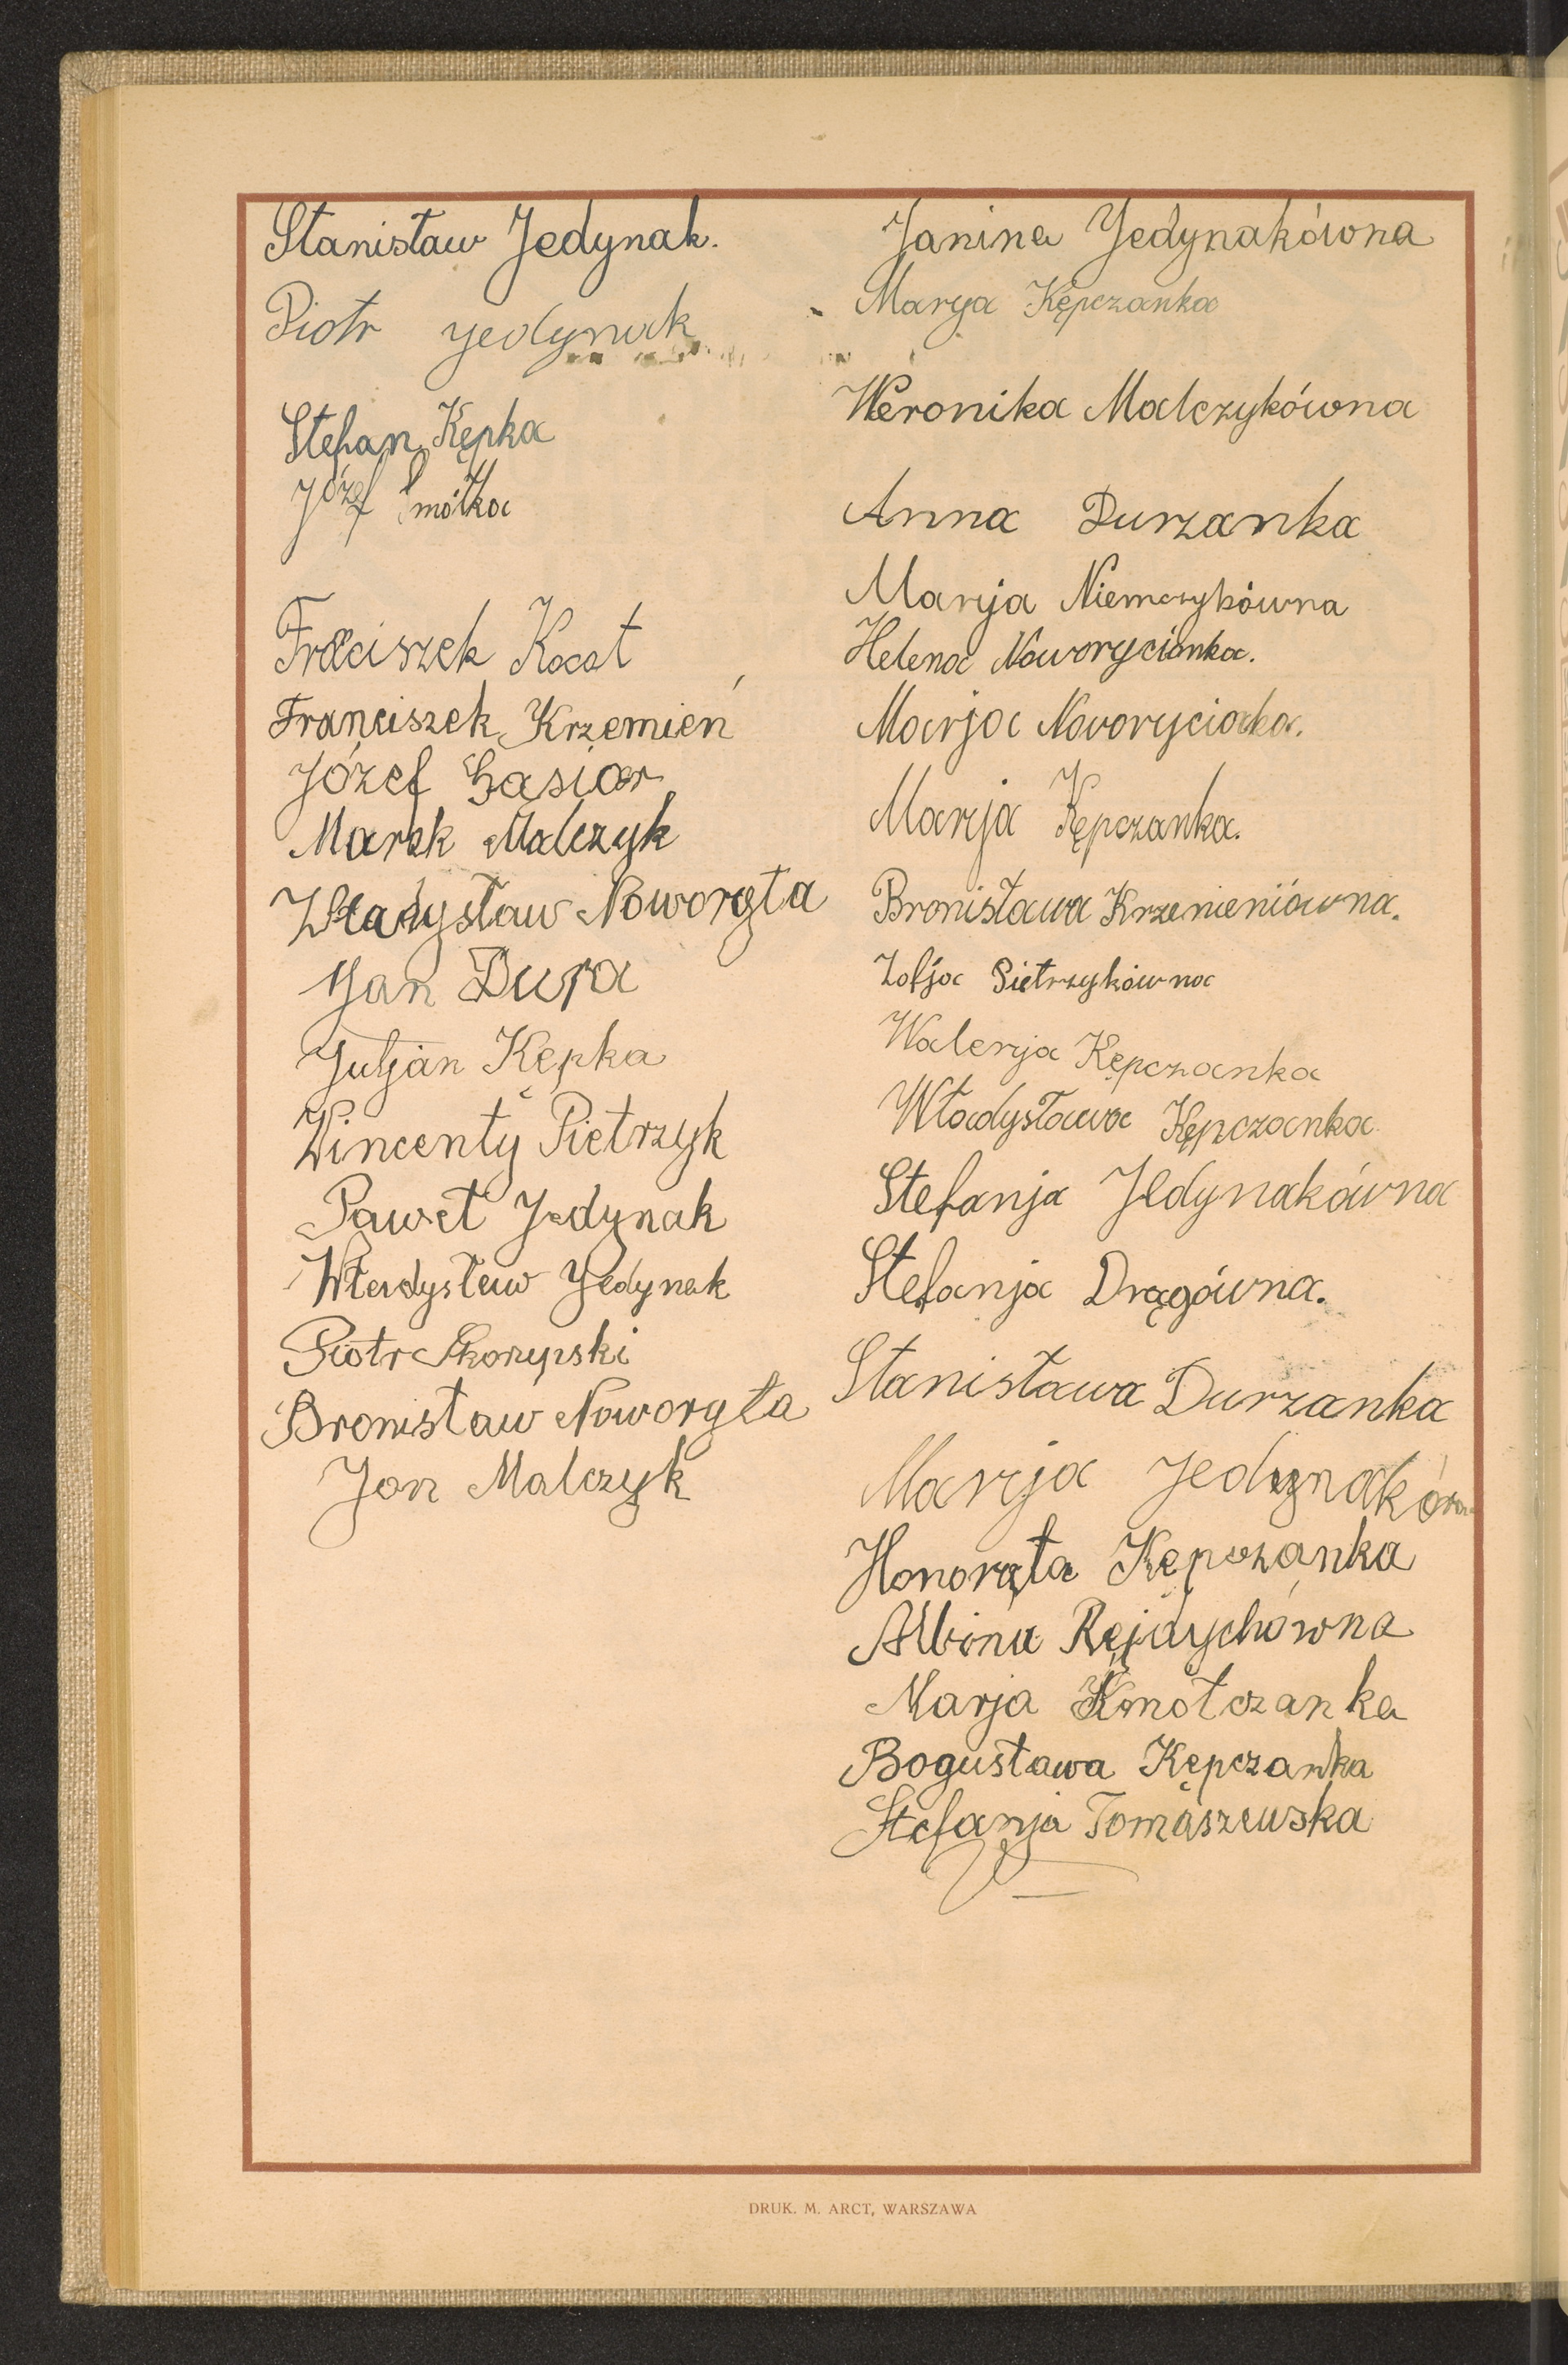 Stanisław Jedynak.
Piotr Jedynak
Stefan Kępka
Józef Smółka
Franciszek Kocot
Franciszek Krzemień
Józef Gąsior
Marek Malczyk
Władysław Noworyta
Jan Dura
Juljan Kępka
Wincenty Pietrzyk
Paweł Jedynak
Władysław Jedynak
Piotr Skorypski
Bronisław Noworyta
Jan Malczyk
Janina Jedynakówna
Marya Kępczanka
Weronika Malczykówna
Anna Durzanka
Marija Niemczykówna
Helena Noworycianka.
Marja Noworycianka.
Marija Kępczanka.
Bronisława Krzemieniówna.
Zofja Pietrzykówna
Walerja Kępczanka
Władysława Kępczanka
Stefanja Jedynakówna
Stefanja Drągówna.
Stanisława Durzanka
Marija Jedynakówna
Honorata Kępczanka
Albina Rejdychówna
Marja Konotczanka
Bogusława Kępczanka
Stefanja Tomaszewska
DRUK. M. ARCT, WARSZAWA